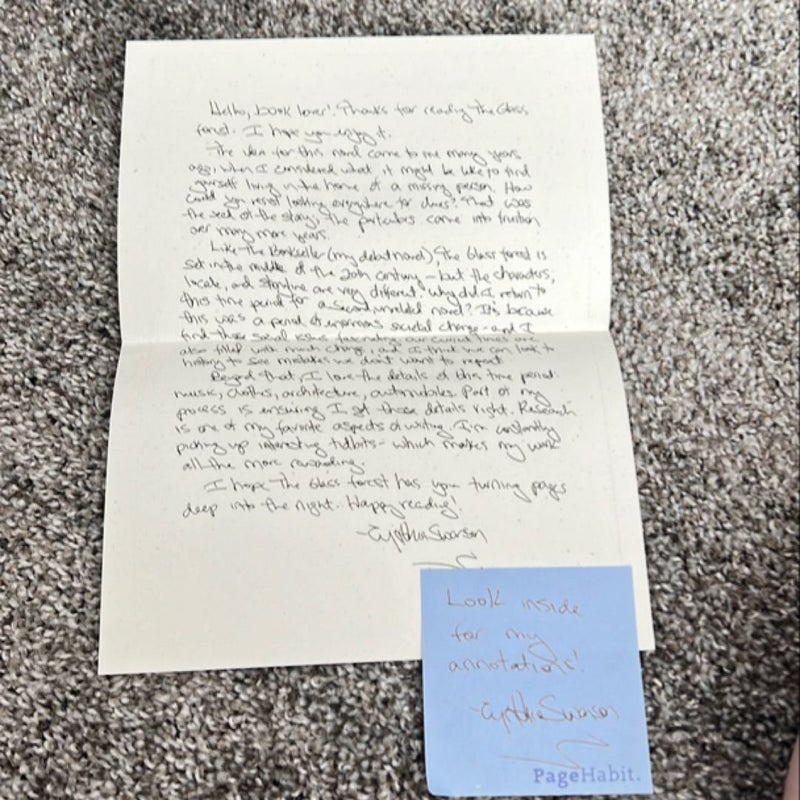 Hello, book lover! Thanks for reading The Glass
Forest. I hope you enjoy it.
The idea for this novel came to me many years
ago, when I considered what it might be like to find
yourself living in the home of a missing person. How
could you resist looking everywhere for clues? That was
the seed of the story; the particulars came into fruition
over many more years.
Like The Bookseller (my debut novel), The Glass Forest is
set in the middle of the 20th century – but the characters,
locale, and storyline are very different. Why did I return to
this time period for a second, unrelated novel? It's because
this was a period of enormous societal change – and I
find those social issues fascinating. Our current times are
also filled with much change, and I think we can look to
history to see mistakes we don't want to repeat.
Beyond that, I love the details of this time period:
music, clothes, architecture, automobiles. Part of my
process is ensuring I get those details right. Research
is one of my favorite aspects of writing. I'm constantly
picking up interesting tidbits – which makes my work
all the more rewarding.
I hope The Glass Forest has you turning pages
deep into the night. Happy reading!
-Cynthia Swanson
Look inside
for my
annotations!
-Cynthia Swanson
PageHabit.